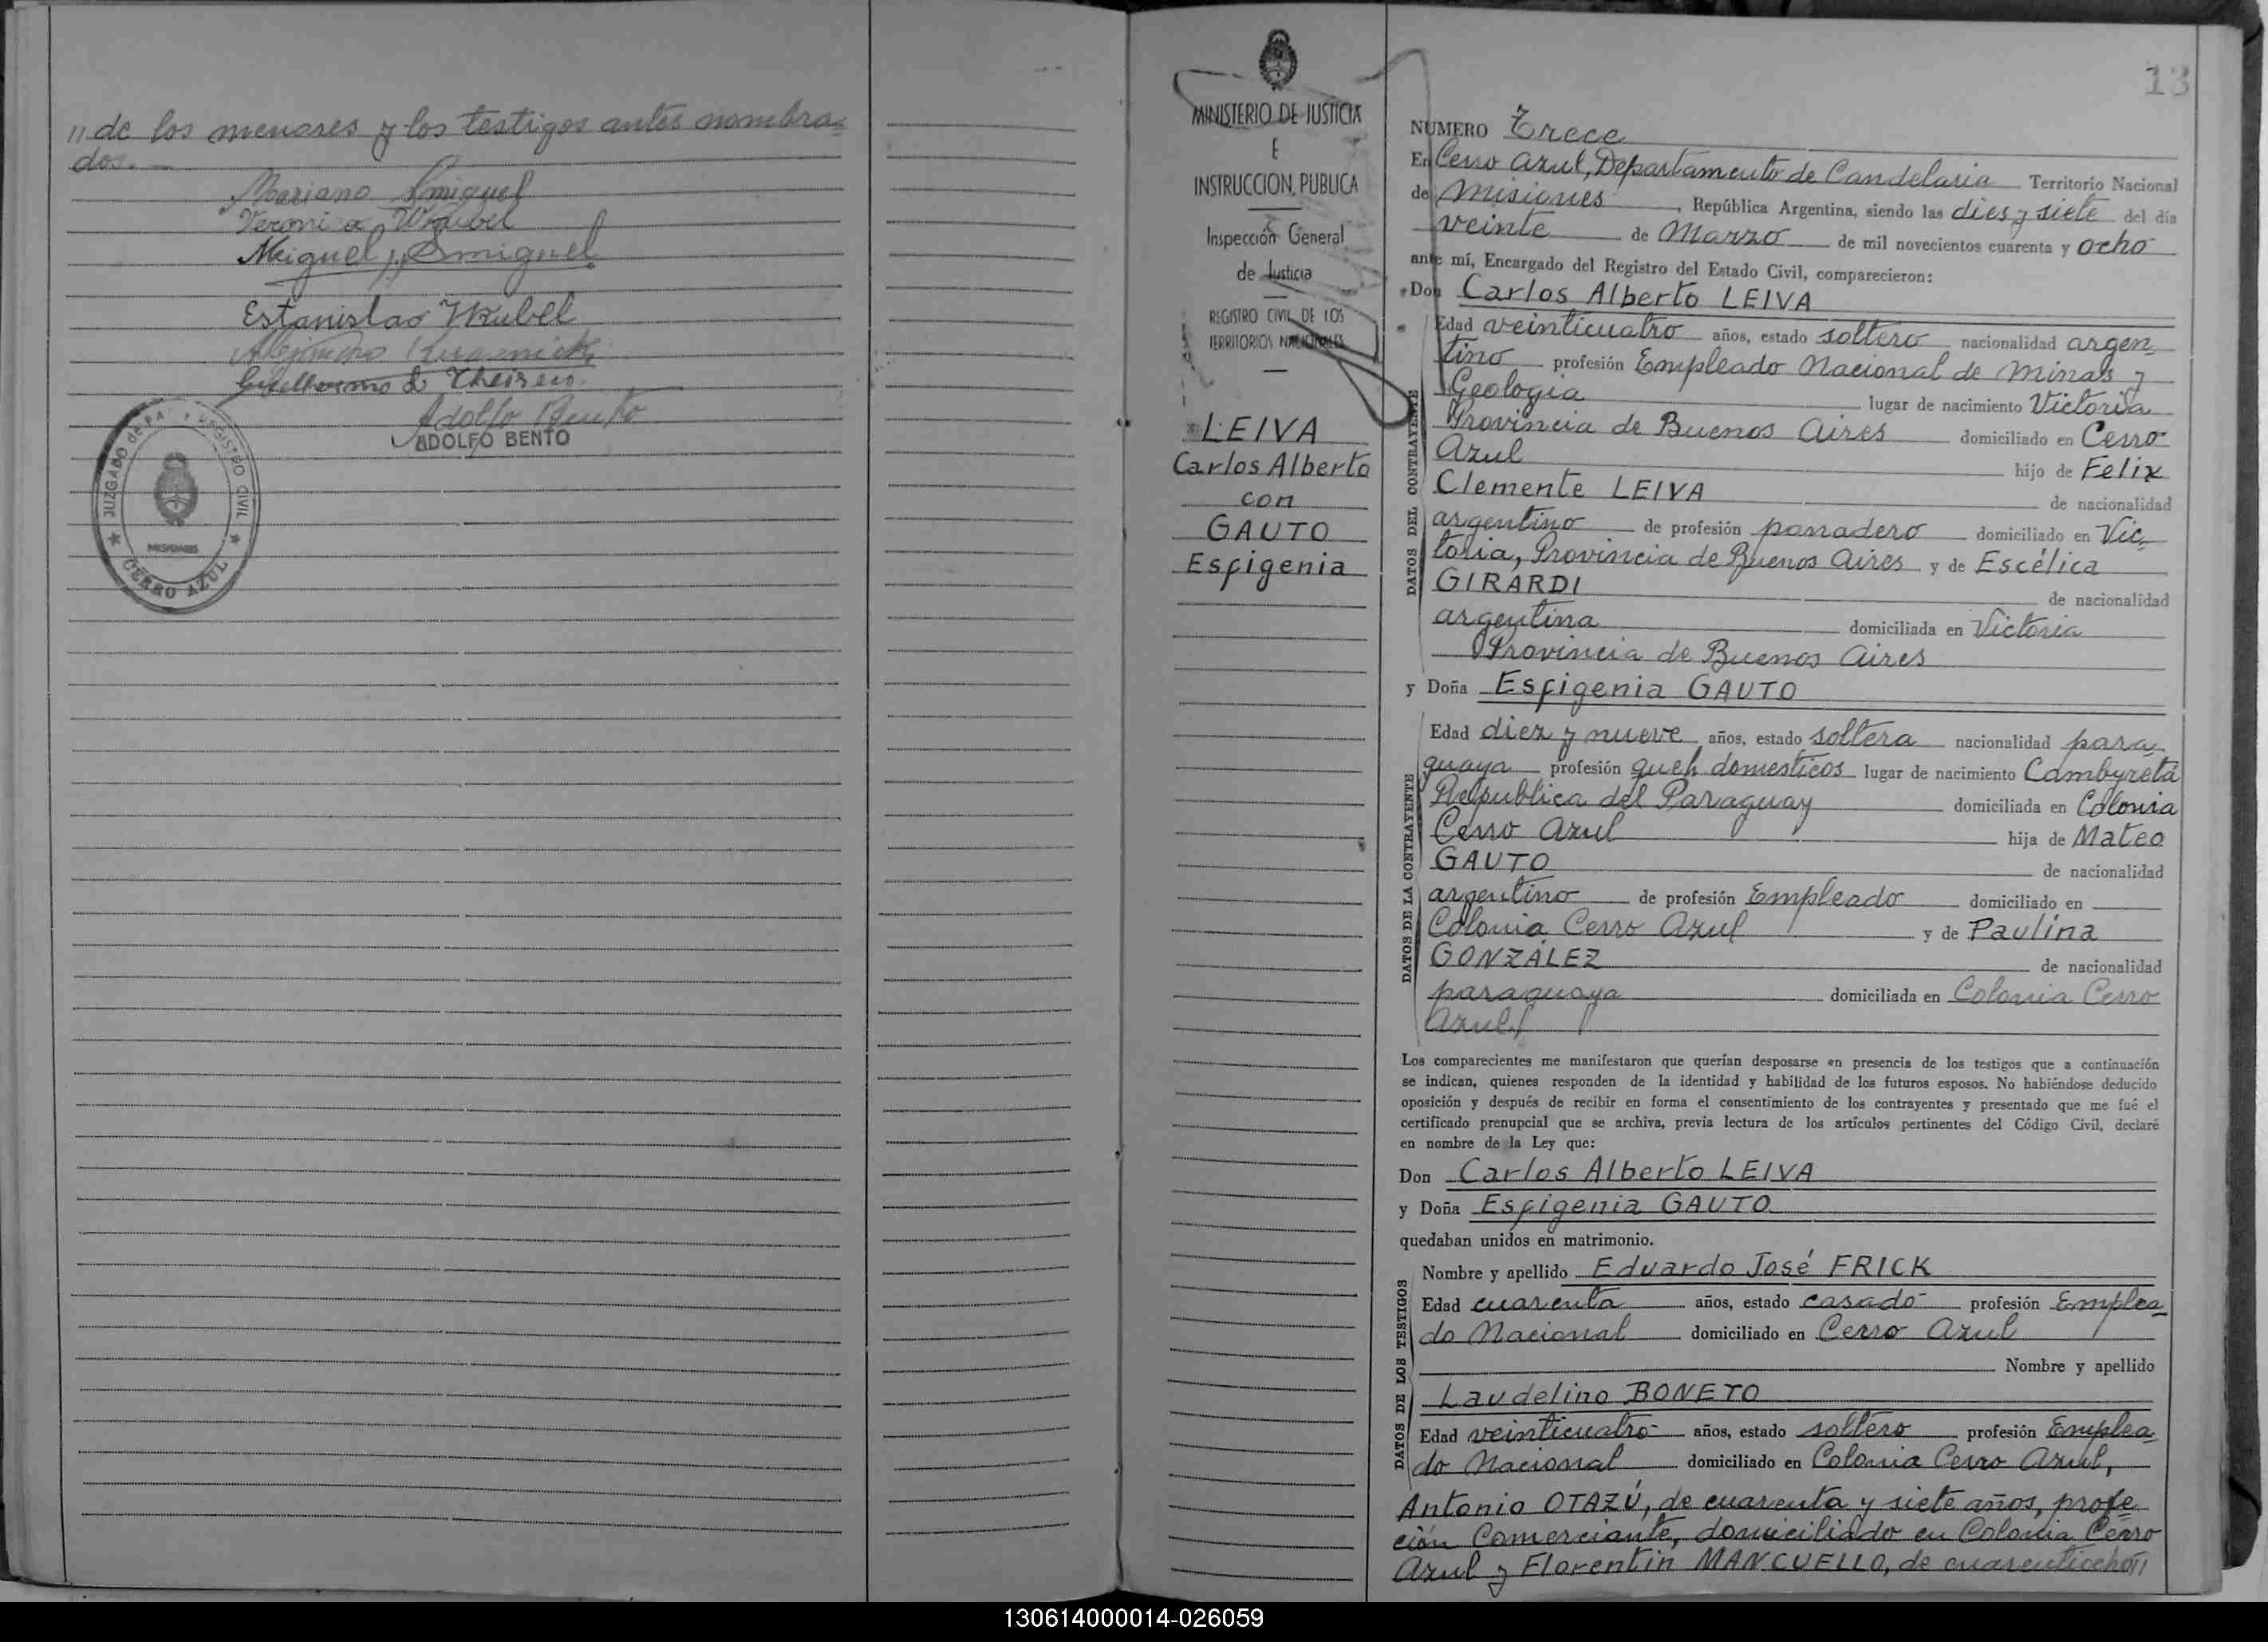 // de los menores y los testigos antes nombra=
dos.—
Mariano Smiguel
Veronica Wrubel
Miguel Smiguel
Estanislao Wrubel
Alejandro
Guillermo
Adolfo Bento
ADOLFO BENTO
JUZGADO de PAZ y REGISTRO CIVIL
MISIONES
CERRO AZUL
MINISTERIO DE JUSTICIA
E
INSTRUCCION PUBLICA
Inspección General
de Justicia
REGISTRO CIVIL DE LOS
TERRITORIOS NACIONALES
LEIVA
Carlos Alberto
con
GAUTO
Esfigenia
13
NUMERO Trece
En Cerro Azul, Departamento de Candelaria Territorio Nacional
de Misiones, República Argentina, siendo las dies y siete del día
veinte de Marzo de mil novecientos cuarenta y ocho
ante mí, Encargado del Registro del Estado Civil, comparecieron:
Don Carlos Alberto LEIVA
DATOS DEL CONTRAYENTE
Edad veinticuatro años, estado soltero nacionalidad argen=
tino profesión Empleado Nacional de Minas y
Geologia lugar de nacimiento Victoria
Provincia de Buenos Aires domiciliado en Cerro
Azul hijo de Felix
Clemente LEIVA de nacionalidad
argentino de profesión panadero domiciliado en Vic=
toria, Provincia de Buenos Aires y de Escélica
GIRARDI de nacionalidad
argentina domiciliada en Victoria
Provincia de Buenos Aires
y Doña Esfigenia GAUTO
DATOS DE LA CONTRAYENTE
Edad diez y nueve años, estado soltera nacionalidad para=
guaya profesión queh. domesticos lugar de nacimiento Cambyretá
Republica del Paraguay domiciliada en Colonia
Cerro Azul hija de Mateo
GAUTO de nacionalidad
argentino de profesión Empleado domiciliado en
Colonia Cerro Azul y de Paulina
GONZÁLEZ de nacionalidad
paraguaya domiciliada en Colonia Cerro
Azul
Los comparecientes me manifestaron que querían desposarse en presencia de los testigos que a continuación
se indican, quienes responden de la identidad y habilidad de los futuros esposos. No habiéndose deducido
oposición y después de recibir en forma el consentimiento de los contrayentes y presentado que me fué el
certificado prenupcial que se archiva, previa lectura de los artículos pertinentes del Código Civil, declaré
en nombre de la Ley que:
Don Carlos Alberto LEIVA
y Doña Esfigenia GAUTO
quedaban unidos en matrimonio.
DATOS DE LOS TESTIGOS
Nombre y apellido Eduardo José FRICK
Edad cuarenta años, estado casado profesión Emplea=
do Nacional domiciliado en Cerro Azul
Nombre y apellido
Laudelino BONETO
Edad veinticuatro años, estado soltero profesión Emplea=
do Nacional domiciliado en Colonia Cerro Azul,
Antonio OTAZÚ, de cuarenta y siete años, profe=
ción Comerciante, domiciliado en Colonia Cerro
Azul y Florentin MANCUELLO, de cuarentiocho//
130614000014-026059